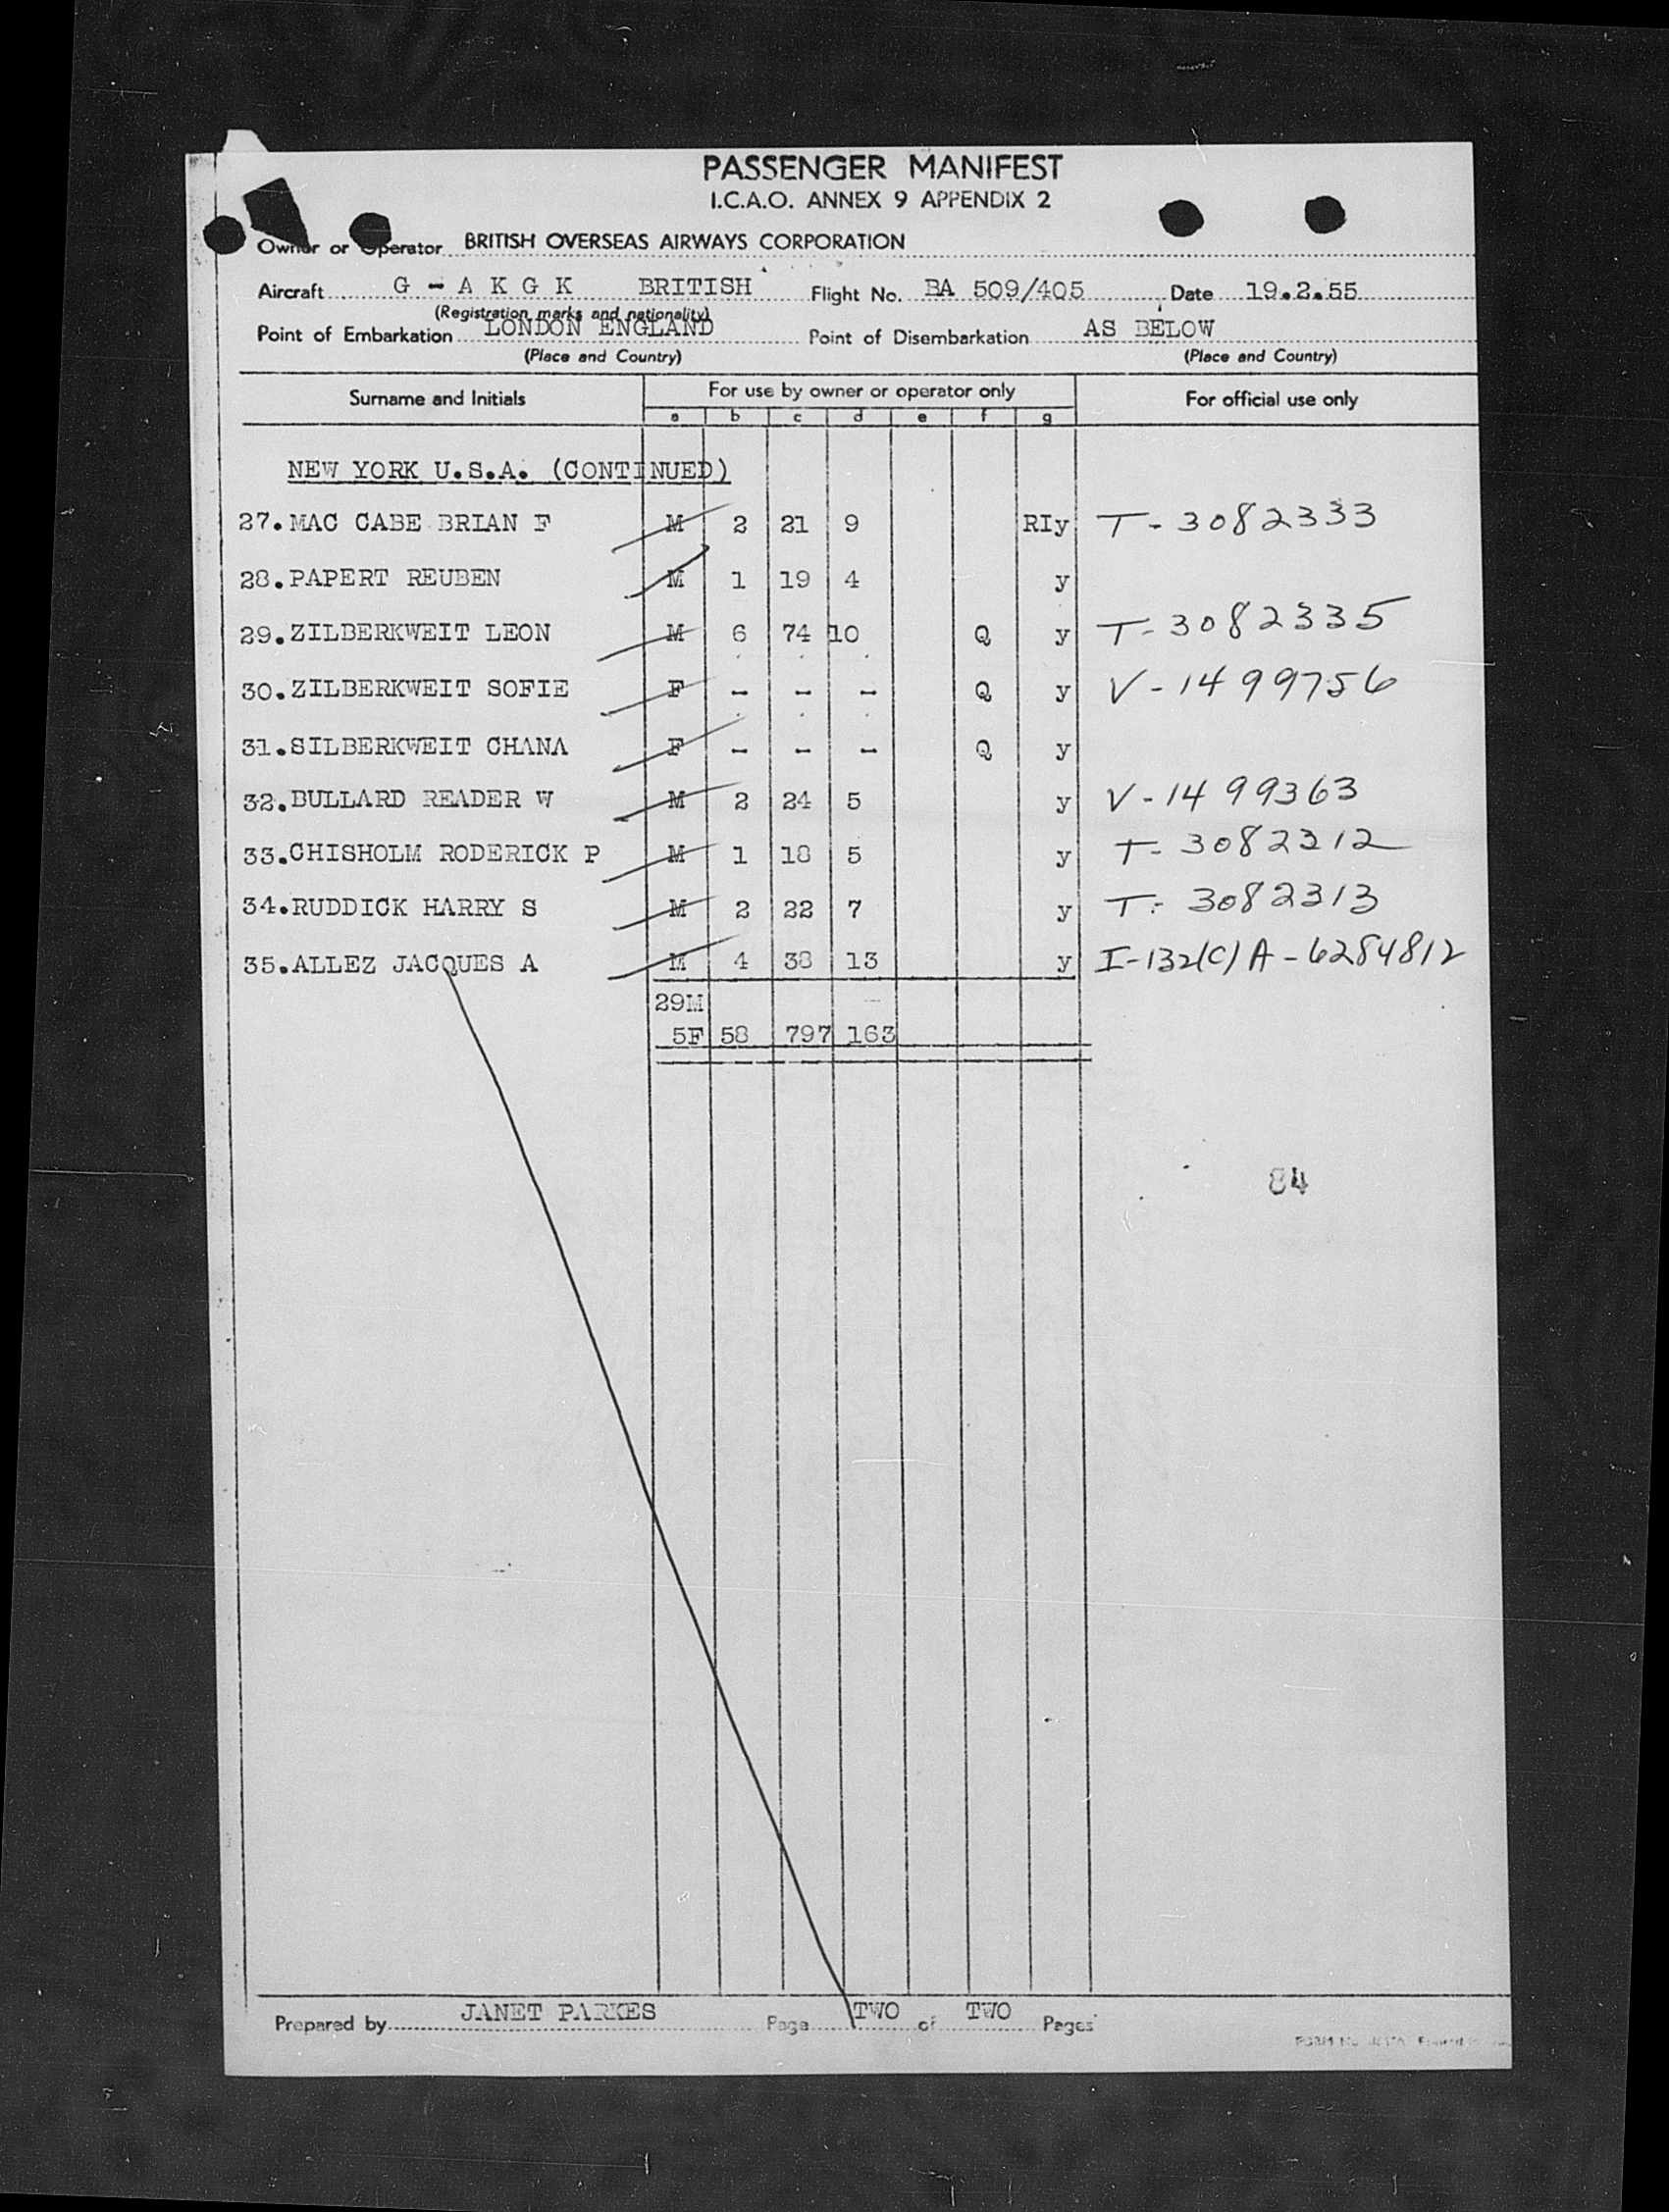 PASSENGER MANIFEST
I.C.A.O. ANNEX 9 APPENDIX 2
Owner or Operator BRITISH OVERSEAS AIRWAYS CORPORATION
Aircraft G - A K G K BRITISH Flight No. BA 509/405 Date 19.2.55
(Registration marks and nationality)
Point of Embarkation LONDON ENGLAND Point of Disembarkation AS BELOW
(Place and Country) (Place and Country)
Surname and Initials For use by owner or operator only For official use only
a b c d e f g
NEW YORK U.S.A. (CONTINUED)
27. MAC CABE BRIAN F M 2 21 9 RIy T-3082333
28. PAPERT REUBEN M 1 19 4 y
29. ZILBERKWEIT LEON M 6 74 10 Q y T-3082335
30. ZILBERKWEIT SOFIE F - - - Q y V-1499756
31. SILBERKWEIT CHANA F - - - Q y
32. BULLARD READER W M 2 24 5 y V-1499363
33. CHISHOLM RODERICK P M 1 18 5 y T-3082312
34. RUDDICK HARRY S M 2 22 7 y T-3082313
35. ALLEZ JACQUES A M 4 38 13 y I-132(C) A-6284812
29M
5F 58 797 163
84
Prepared by JANET PARKES Page TWO of TWO Pages